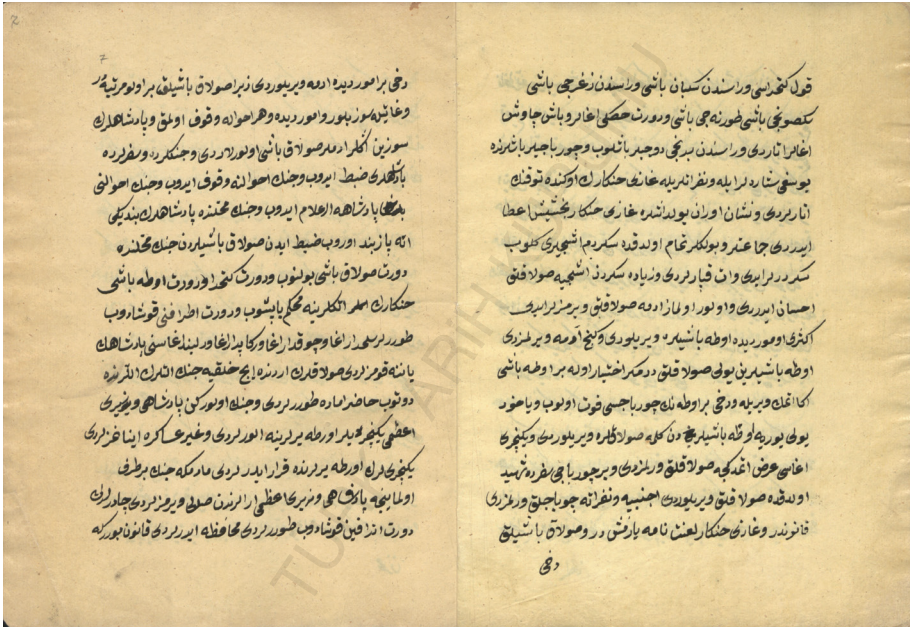 قول كتخداسی وراسندن سكبان باشی وراسندن زغرجی باشی
سكصونجی باشی طورنه جی باشی ودورت حصكی اغالر وباش چاوش
اغالر اتاردی وراسندن دوجیلر باشلوب وچورباجیلر باشلرنده
یوسفی ستاره لر ایله ونفراتلریله غازی خنكارك اوكنده توفنك
اتارلردی ونشان اوران یولداشلره غازی خنكار بخشیش اعطا
ایدردی جماعتلر وبولكلر تمام اولدقده سكردم اشجیلری كلوب
سكردرلر ایدی وات قپارلردی وزیاده سكردن اشجیه صولاقلق
احسان ایدردی واولور اولماز ادمه صولاقلق ویرمزلر ایدی
اكثری اموردیده اوطه باشیلره ویریلوردی وكنج آدمه ویرلمزدی
اوطه باشیلرین یولی صولاقلق در مكر اختیار اوله بر اوطه باشی
اكا اغالك ویریله ودخی بر اوطه نك چورباجسی فوت اولوب ویاخود
یولی یوریه اوطه باشیلریچون دن كله صولاقلره ویریلوردی ویكیچری
اغاسی عرض اتمدكجه صولاقلق ورلمزدی وبر چورباجی سفرده شهید
اولدقده صولاقلق ویریلوردی اجنبیه ونفراته چورباجلق ورلمزدی
قانوندر وغازی خنكار لعنت نامه یازمش در وصولاق باشیلق
دخی
7
دخی بر اموردیده ادمه ویریلوردی زیرا صولاق باشیلق بر اولو مرتبه در
وغایتله سوز بیلور واموردیده وهر احواله وقوف اولمق وپادشاهلرك
سوزین اكلر ادملر صولاق باشی اولورلردی وجنكلرده وسفرلرده
پادشاهلری ضبط ایدوب وجنك احوالنه وقوف ایدوب وجنك احوالنی
پادشاهه اعلام ایدوب وجنك محلنده پادشاهلرك بندیكی
اته بازبند اوروب ضبط ایدن صولاق باشیلردن جنك محلنده
دورت صولاق باشی بولنوب ودورت كتخدا ودورت اوطه باشی
خنكارك اتكلرینه محكم یاپیشوب ودورت اطرافنی قوشادوب
طوررلر سلحدار اغا وچوقدار اغا وركابدار اغا ودلبند اغاسنی پادشاهك
یاننه قومزلردی صولاقلرك اردنده ایچ خلقیه جنك اتلرك اللرنده
دوتوب حاضر اماده طوررلردی وجنك اولوركن پادشاهی ووزیری
اعظمی یكیچریلر اورطه یرلرینه الورلردی وغیر عساكره اینانمزلردی
یكیچریلرك اورطه یرلرنده قرار ایدرلردی مادمكه جنك برطرف
اولماینجه پادشاهی ووزیری اعظمی ارالرندن صولی ویرمزلردی چادرلرك
دورت اندافین قوشادوب طوررلردی محافظه ایدرلردی قانون بودركه